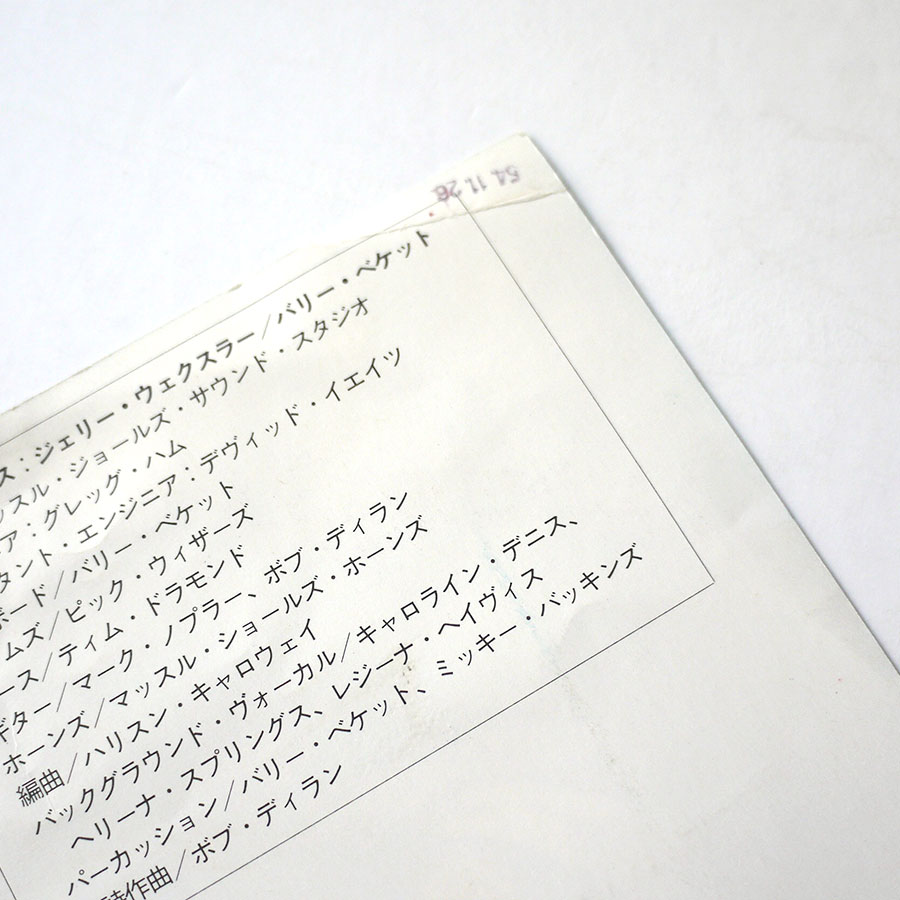 54.11.26
ス：ジェリー・ウェクスラー/バリー・ベケット
ッスル・ショールズ・サウンド・スタジオ
ア：グレッグ・ハム
タント・エンジニア：デヴィッド・イエイツ
ボード/バリー・ベケット
ムズ/ピック・ウィザーズ
ース/ティム・ドラモンド
ギター/マーク・ノプラー、ボブ・ディラン
ホーンズ/マッスル・ショールズ・ホーンズ
編曲/ハリスン・キャロウェイ
バックグラウンド・ヴォーカル/キャロライン・デニス、
ヘリーナ・スプリングス、レジーナ・ヘイヴィス
パーカッション/バリー・ベケット、ミッキー・バッキンズ
詩作曲/ボブ・ディラン